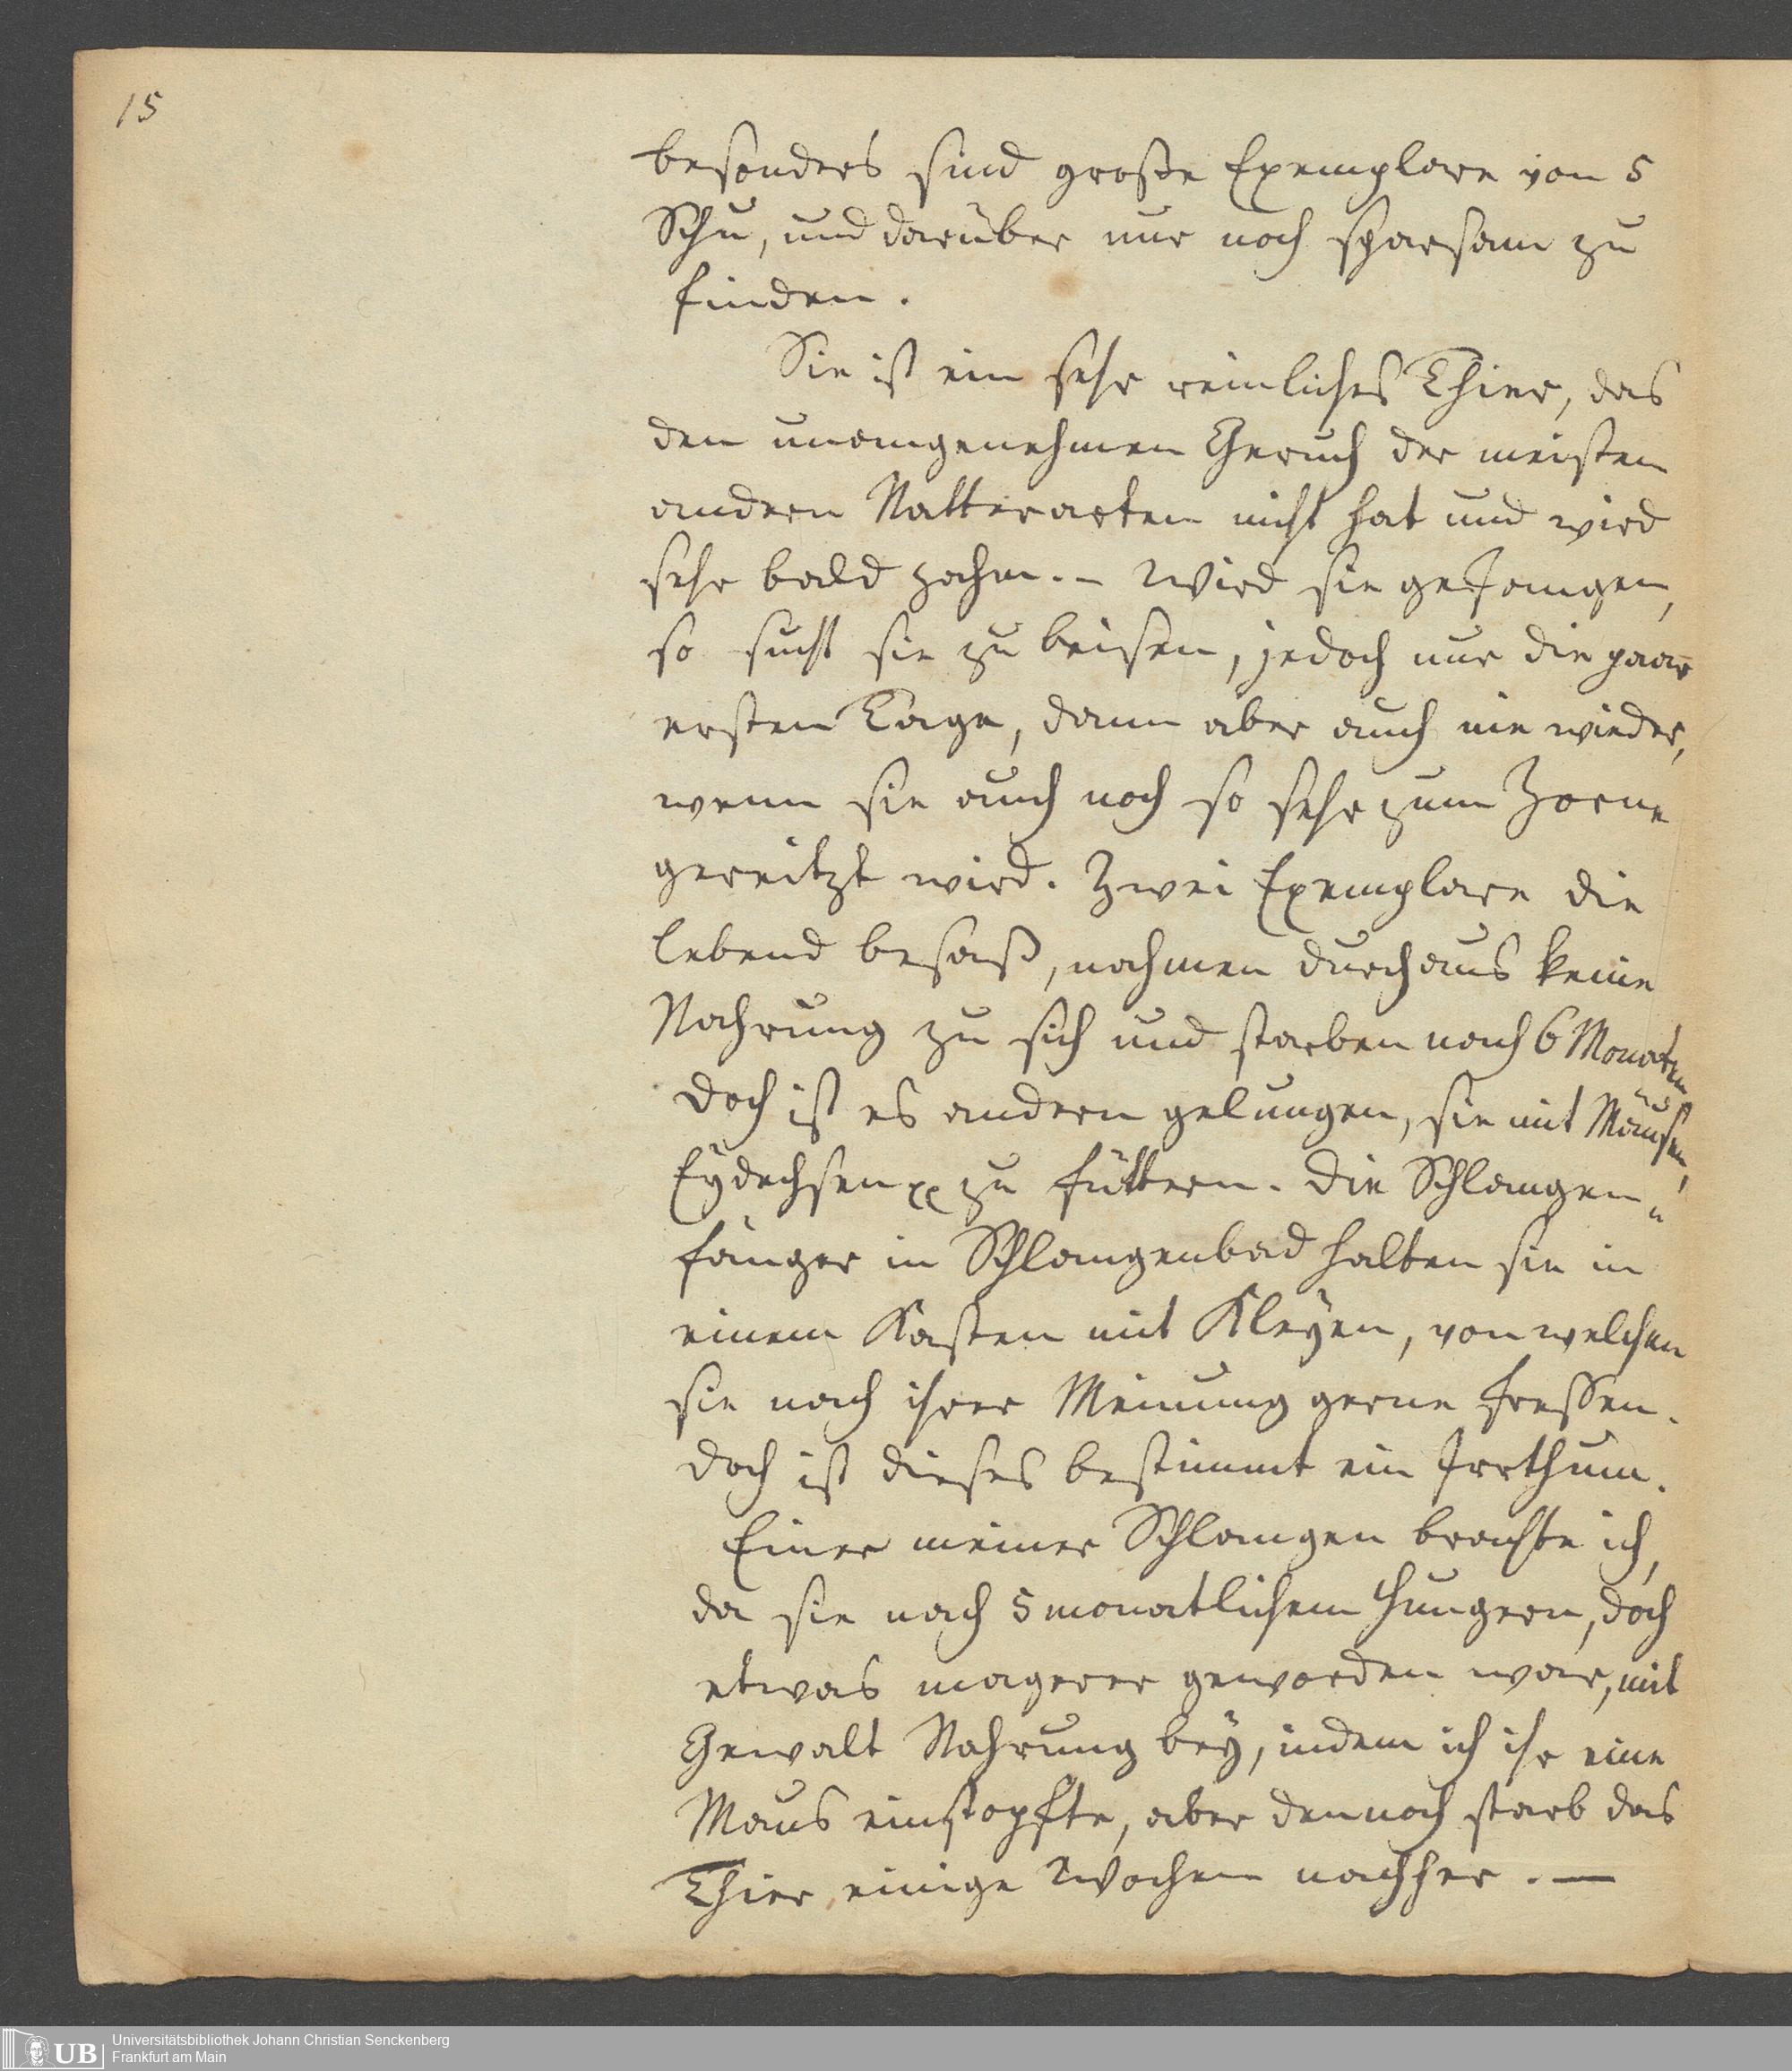 15
besonders sind große Exemplare von 5
Schu, und darüber nur noch sparsam zu
finden.
Sie ist ein sehr reinliches Thier, das
den unangenehmen Geruch der meisten
andern Natterarten nicht hat und wird
sehr bald zahm. – Wird sie gefangen,
so sucht sie zu beisen, jedoch nur die paar
ersten Tage, dann aber auch nie wieder,
wenn sie auch noch so sehr zum Zorne
gereitzt wird. Zwei Exemplare die
lebend besaß, nahmen durchaus keine
Nahrung zu sich und starben nach 6 Monaten
doch ist es andern gelungen, sie mit Mäusen,
Eydechsen xx zu füttern. Die Schlangen„
fänger in Schlangenbad halten sie in
einem Kasten mit Kleyen, von welchen
sie nach ihrer Meinung gerne fressen.
doch ist dieses bestimmt ein Irrthum.
Einer meiner Schlangen brachte ich,
da sie nach 5 monatlichem Hungern, doch
etwas magerer geworden war, mit
Gewalt Nahrung bey, indem ich ihr eine
Maus einstopfte, aber dennoch starb das
Thier einige Wochen nachher. —
UB
Universitätsbibliothek Johann Christian Senckenberg
Frankfurt am Main